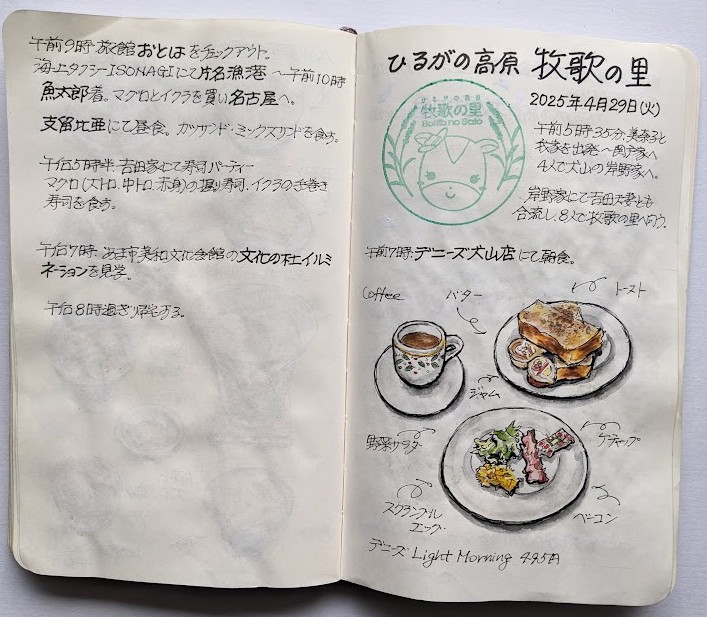 午前9時、旅館おとはをチェックアウト。
海上タクシーISONAGIにて片名漁港〜午前10時
魚太郎着。マグロとイクラを買い名古屋へ。
支留比亜にて昼食。カツサンド・ミックスサンドを食す。
午后5時半、吉田家にて寿司パーティー
マグロ(大トロ、中トロ、赤身)の握り寿司、イクラの手巻き
寿司を食す。
午后7時、あま市美和文化会館の文化の杜イルミ
ネーションを見学。
午后8時過ぎ帰宅する。
ひるがの高原 牧歌の里
2025年4月29日(火)
ひるがの高原
牧歌の里
Bokka no Sato
午前5時35分、美奈子と
我家を出発〜関戸家へ
4人で犬山の岸野家へ。
岸野家にて吉田夫妻とも
合流し、8人で牧歌の里へ向う。
午前7時、デニーズ犬山店にて朝食。
Coffee
バター
トースト
ジャム
野菜サラダ
ケチャップ
スクランブル
エッグ
ベーコン
デニーズ Light Morning 495円